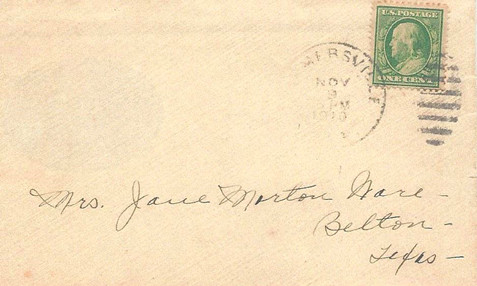 U.S. POSTAGE
ONE CENT
NOV
9
PM
1910
Mrs. Jane Morton Ware -
Belton -
Texas -